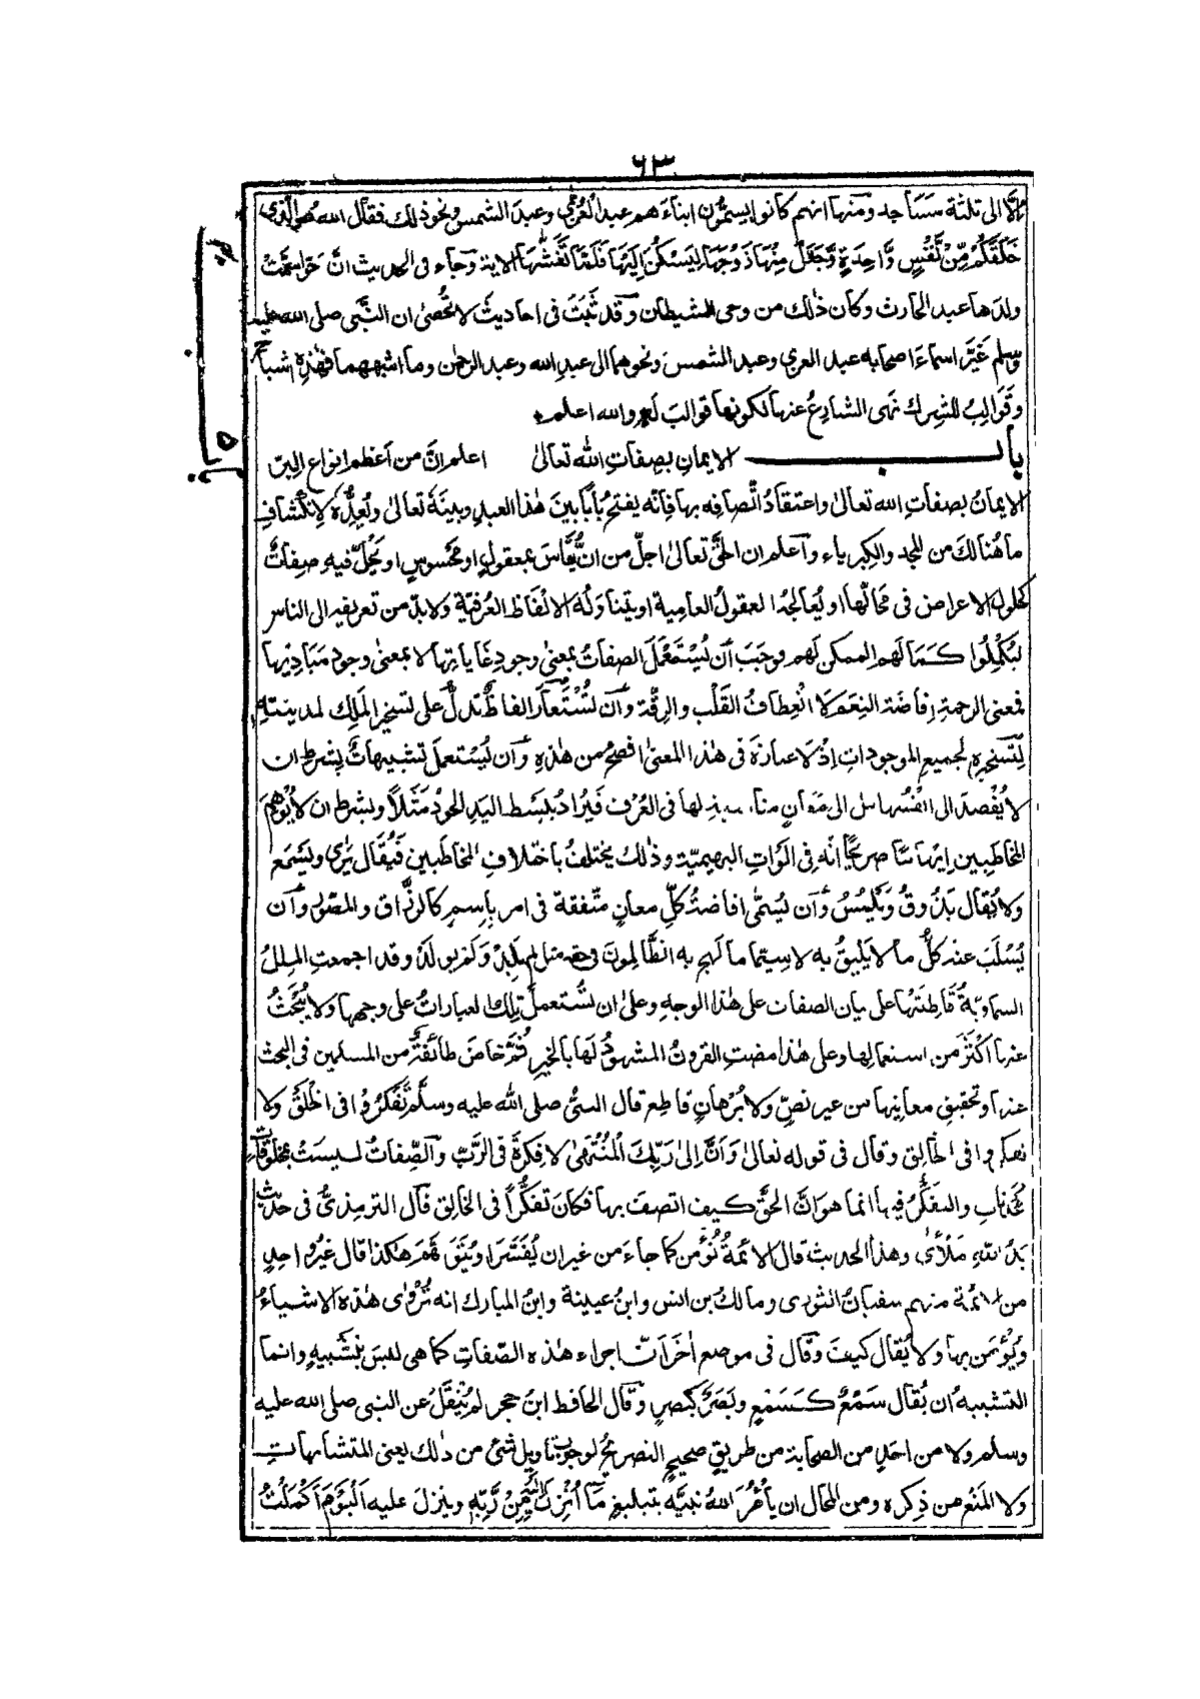 ٦٣
إلا الى ثلثة مساجد ومنها انهم كانوا يسمّون ابناءَهم عبد العُزّى وعبدَ الشمس ونحوَ ذلك فقال الله هُوَ الَّذِى
خَلَقَكُمْ مِّنْ نَّفْسٍ وَّاحِدَةٍ وَّجَعَلَ مِنْهَا زَوْجَهَا لِيَسْكُنَ اِلَيْهَا فَلَمَّا تَغَشّٰهَا الاية وجاء فى الحديث انَّ حَوّا سَمَّتْ
ولدَها عبد الحارث وكان ذٰلك من وحى الشيطان وقد ثَبَتَ فى احاديثَ لا تُحصٰى ان النَّبى صلى الله عليه
وسلم غَيَّرَ اسماءَ اصحابه عبد العزى وعبد الشمس ونحوهما الى عبدِ الله وعبد الرحمٰن وما اشبههما فهٰذِه اشباحٌ
وقَوَالِبُ للشرك نهى الشارعُ عنها لكونها قوالبَ لَهٗ والله اعلم
باب الايمانِ بصفاتِ الله تعالىٰ اعلم انَّ من اعْظم انواع البِرّ
الايمانُ بصفاتِ الله تعالىٰ واعتقادُ اتّصافِه بها فانّه يفتحُ بابًا بينَ هٰذا العبدِ وبينَهٗ تعالىٰ ويُعِدُّهٗ لاِنكشافِ
ما هُنالكَ من المجد والكبرياء واعلم ان الحقَّ تعالىٰ اجلّ من ان يُّقاسَ بمعقولٍ او محسوسٍ او يَحُلَّ فيه صفاتٌ
كحلول الاعراض فى مَحالّها او يُعالجهُ العقولُ العامية او يتناوَلهُ الالفاظ العُرفيّة ولا بدّ من تعريفه الى الناس
ليُكمِلُوا كَمَالَهم الممكن لهم فوجَبَ أن تُسْتَعْمَلَ الصفاتُ بمعنى وجودِ غايَاتِها لا بمعنى وجود مَبَادِيْها
فمعنى الرحمةِ اِفاضَة النِعَم لا انْعِطافُ القَلْب والرِقّة وان تُسْتَعارَ الفاظٌ تدلُّ على تسخيرِ المَلِك لمدينته
لِتَسْخِيرِهٖ لجميع الموجوداتِ اِذْ لا عبارةَ فى هٰذا المعنىٰ افصحُ من هٰذهِ وأن تُسْتعملَ تشبيهاتٌ بشرط ان
لا يُقْصَدَ الى انْفُسِها بل الى مَعانٍ مناسبةٍ لها فى العُرْف فَيُرادُ بِبَسْط اليَدِ الجودُ مَثَلًا وبشرط ان لا يُوْهِمَ
المخاطَبين اِيهامًا صريحًا انّه فى الواثِ البهيميّة وذٰلك يختلفُ باختلافِ المخاطَبين فَيُقال يَرٰى ويَسْمَع
ولا يُقال يَذُوقُ ويَلْمِسُ وأن يُسمّٰى افاضةُ كلِّ معانٍ متّفقة فى امرٍ باِسمٍ كالرزّاق والمصّوِّر وأن
يُسْلَبَ عنه كلُّ ما لا يَليقُ به لا سِيّما ما لَهِجَ به الظّالِمون فى حقه مثل لم يَلِدْ وَلَم يولَدْ وقد اجمعتِ المِلَلُ
السماويّةُ قاطِبَتُها على بيان الصفات على هٰذا الوجهِ وعلىٰ ان تُستعمل تِلْكَ العباراتُ على وجهها ولا يُبْحَثُ
عنها اكثَرَ من استعمالها وعلى هٰذا مضتِ القرونُ المشهودُ لَها بالخير ثُمَّ خاضَ طائفَةٌ من المسلمين فى البحث
عنها وتحقيقِ معانِيها من غير نصٍّ ولا بُرْهانٍ قاطِعٍ قال النبىُّ صلى الله عليه وسلَّم تَفكّرُوْا فى الخلْقِ ولا
تفكروا فى الخالِق وقال فى قوله تعالىٰ وَاَنَّ اِلىٰ رَبِّكَ الْمُنْتَهٰى لا فِكرَةَ فى الرَّبِّ والصّفاتُ لَيستْ بمخلوقات
مُحْدَثاتٍ والتفكُّرُ فِيها انما هو اَنَّ الحقَّ كيف اتصفَ بها فكانَ تفكُّرًا فى الخالِق قال الترمذىُّ فى حديث
يَدُ اللهِ مَلْأٰى وهٰذا الحديث قال الائمةُ نُؤْمن كما جاءَ من غير ان يُفَسَّرَ او يُتَوَهَّمَ هٰكذا قال غيرُ واحدٍ
من الائمة منهم سفيانُ الثورى ومالكُ بن انس وابنُ عيينة وابنُ المبارك انه تُرْوٰى هٰذه الاشياءُ
ويُؤْمَن بها ولا يُقال كيفَ وقال فى موضع اٰخرَ انّ اجراء هٰذه الصّفاتِ كما هى ليسَ بِتَشْبيهٍ وانما
التشبيهُ ان يُقال سَمْعٌ كَسَمْعٍ وبَصَرٌ كَبَصرٍ وقال الحافظ ابنُ حجر لم يُنْقَلْ عن النبى صلى الله عليه
وسلم ولا من احدٍ من الصحابة من طريقٍ صحيحٍ التصريحُ لوجوبِ تاويل شئٍ من ذٰلك يعنى المتشابهاتِ
ولا المنعُ من ذِكره ومن المحال ان يأمُرَ اللهُ نبيَّه بتبليغِ مَا اُنْزِلَ اِلَيْهِ مِنْ رَّبِّهٖ وينزلَ عليه اَلْيَوْمَ اَكْمَلْتُ